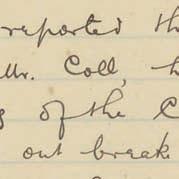 reported th
Mr. Coll, h
g of the C
out break